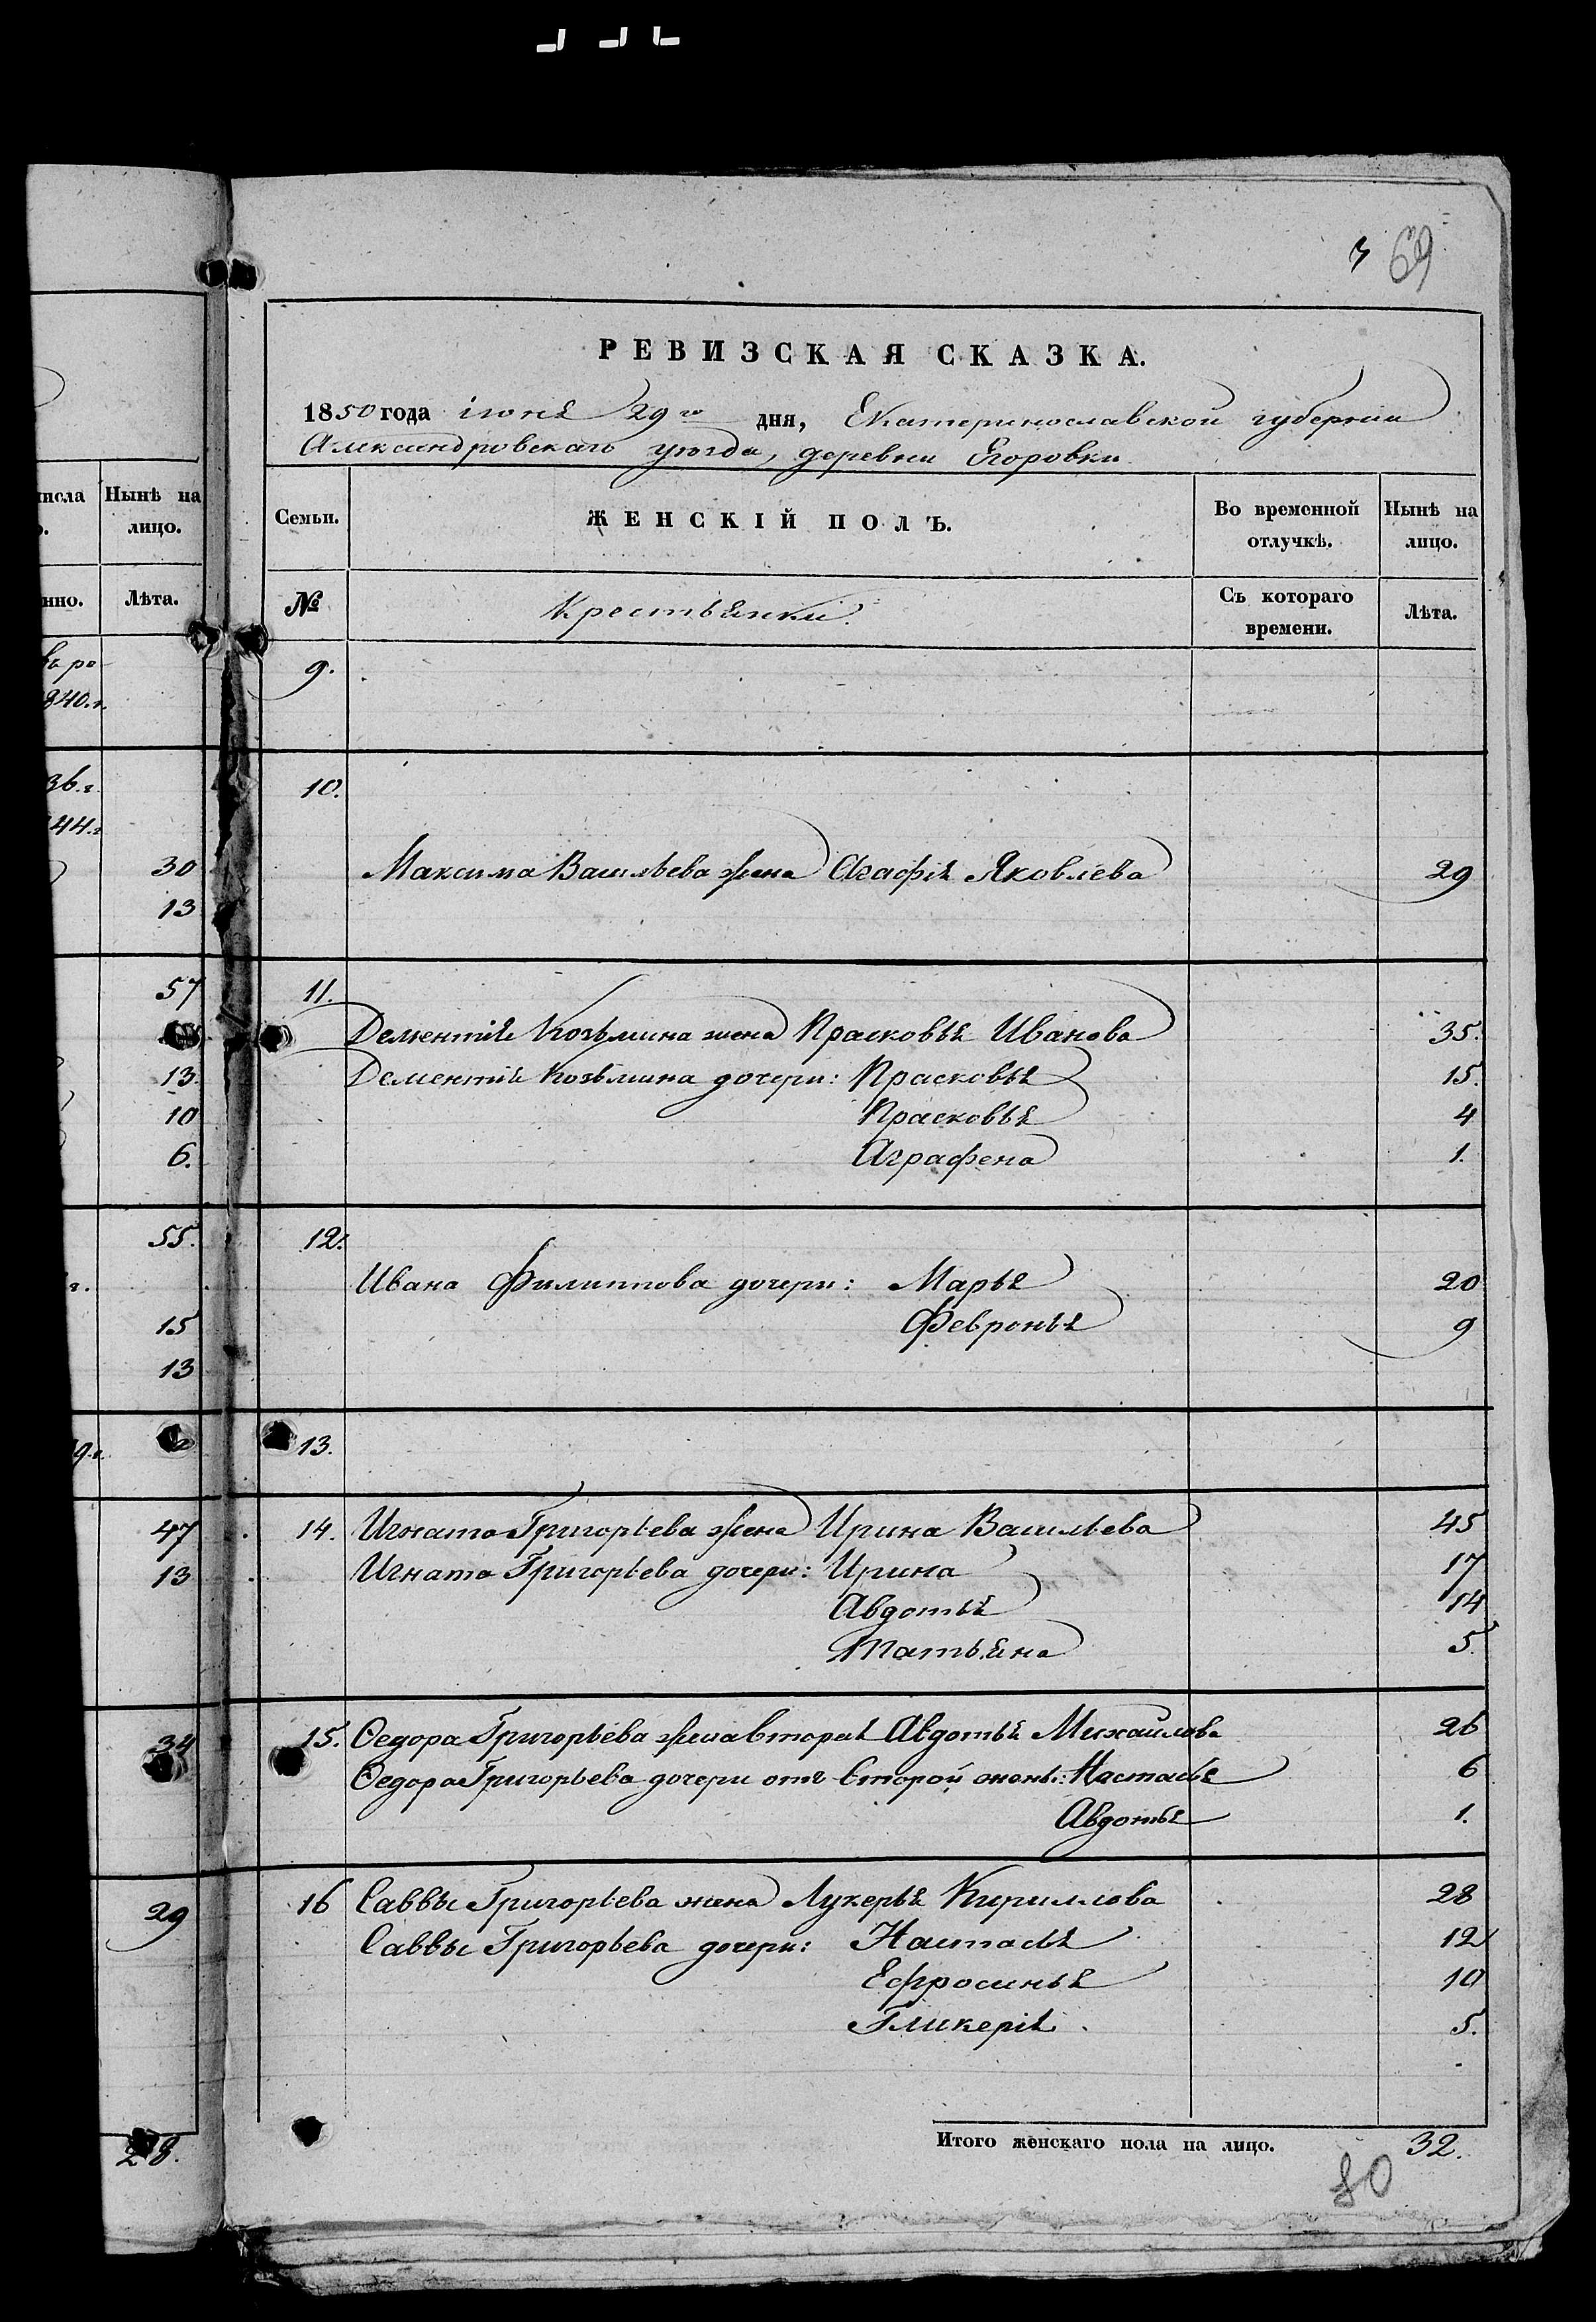 3 69
РЕВИЗСКАЯ СКАЗКА.
1850 года іюня 29го дня, Екатеринославской губерніи
Александровскаго уѣзда, деревни Егоровки
числа Нынѣ на лицо.
Семьи. ЖЕНСКІЙ ПОЛЪ. Во временной отлучкѣ. Нынѣ на лицо.
Лѣта. № Крестьянки. Съ котораго времени. Лѣта.
9.
840.г.
36.г. 10.
44.г
30 Максима Васильева жена Агафія Яковлева 29
13
57 11.
Дементія Козьмина жена Прасковья Иванова 35.
13. Дементія Козьмина дочери: Прасковья 15.
10 Прасковья 4
6. Аграфена 1.
55. 12.
Ивана Филиппова дочери: Марья 20
15 Февронья 9
13
13.
47 14. Игната Григорьева жена Ирина Васильева 45
13 Игната Григорьева дочери: Ирина 17
Авдотья 14
Татьяна 5.
34 15. Ѳедора Григорьева жена вторая Авдотья Михайлова 26
Ѳедора Григорьева дочери отъ второй жены: Настасья 6
Авдотья 1.
29 16 Саввы Григорьева жена Лукерья Кириллова 28
Саввы Григорьева дочери: Настасья 12
Ефросинья 10
Гликерія. 5.
28. Итого женскаго пола на лицо. 32.
80